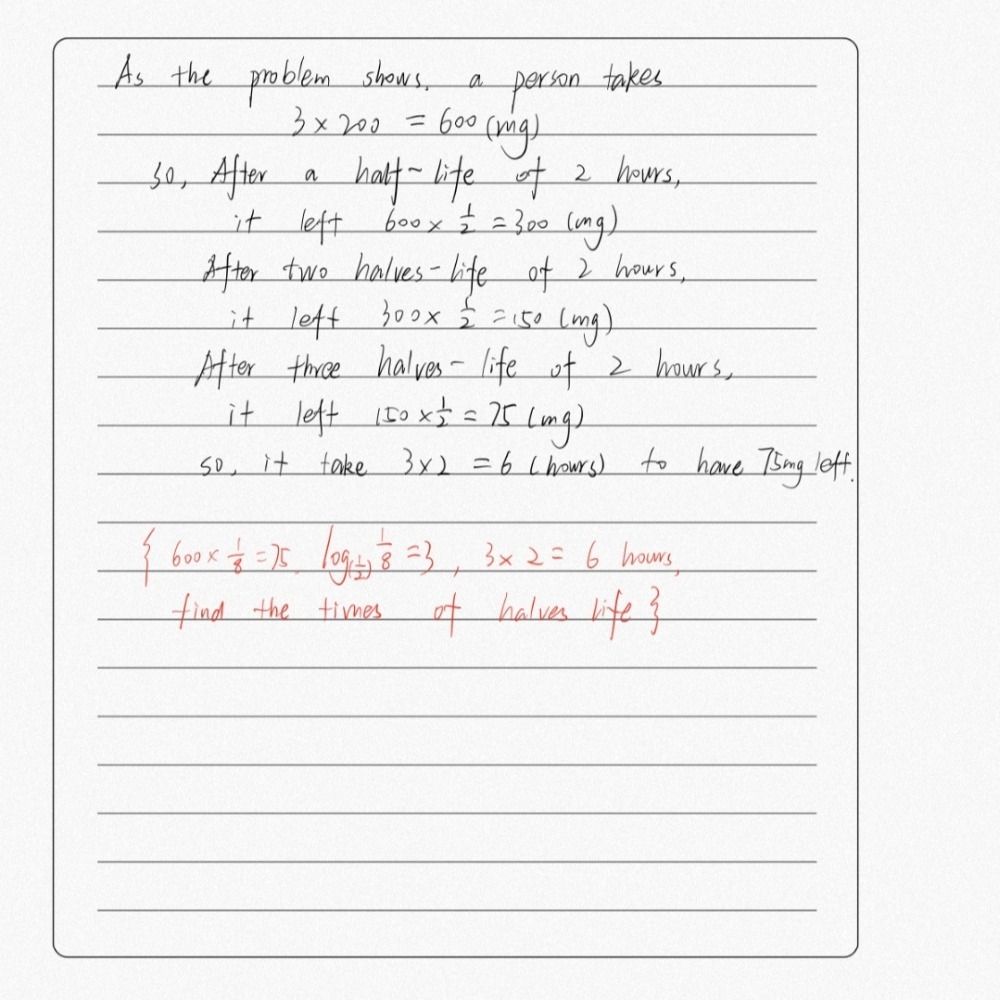 As the problem shows, a person takes
3 × 200 = 600 (mg)
so, After a half-life of 2 hours,
it left 600 × 1/2 = 300 (mg)
After two halves-life of 2 hours,
it left 300 × 1/2 = 150 (mg)
After three halves-life of 2 hours,
it left 150 × 1/2 = 75 (mg)
so, it take 3×2 = 6 (hours) to have 75mg left.
{ 600 × 1/8 = 75. log(1/2) 1/8 = 3, 3 × 2 = 6 hours,
find the times of halves life }